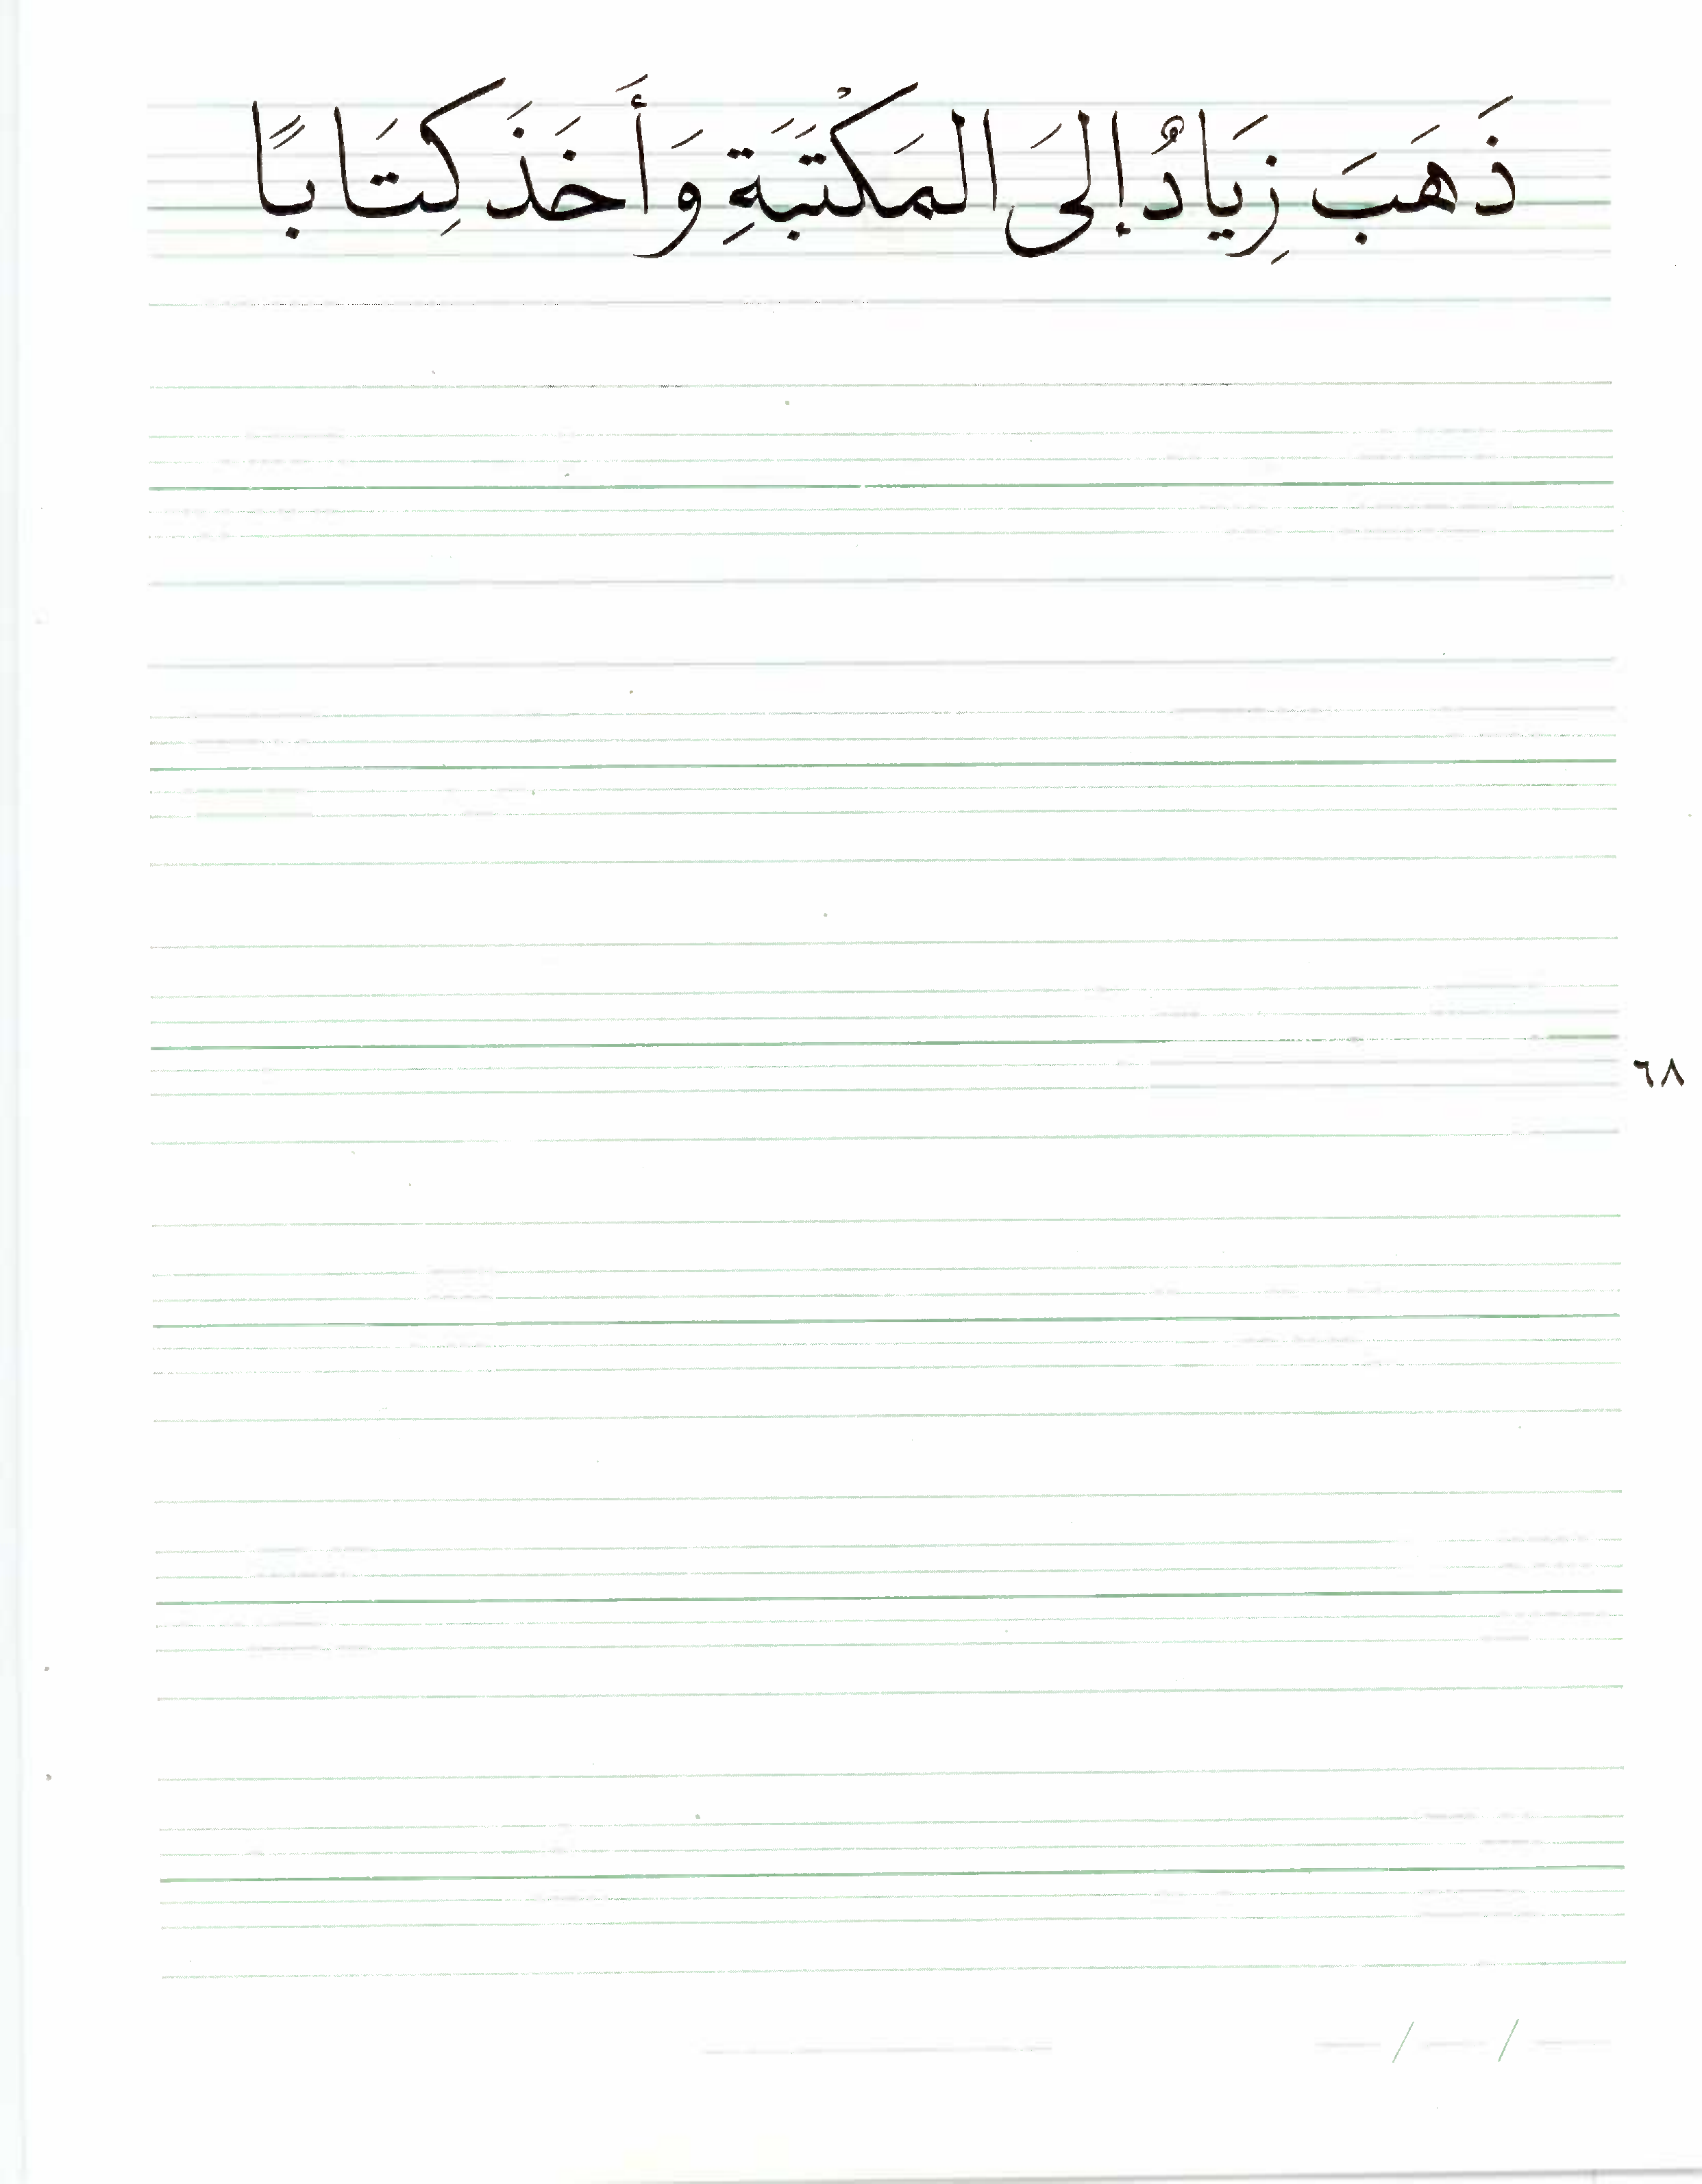 ذَهَبَ زِيَادٌ إلىَ المَكْتَبَةِ وَأَخَذَ كِتَابًا
٦٨